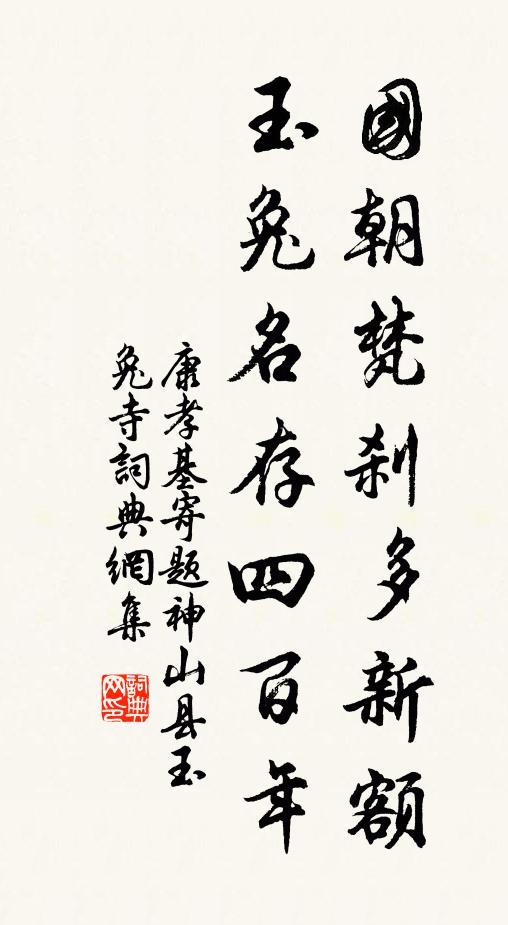 國朝梵刹多新額
玉兔名存四百年
康孝基寄題神山县玉
兔寺詞典網集
詞典
网印